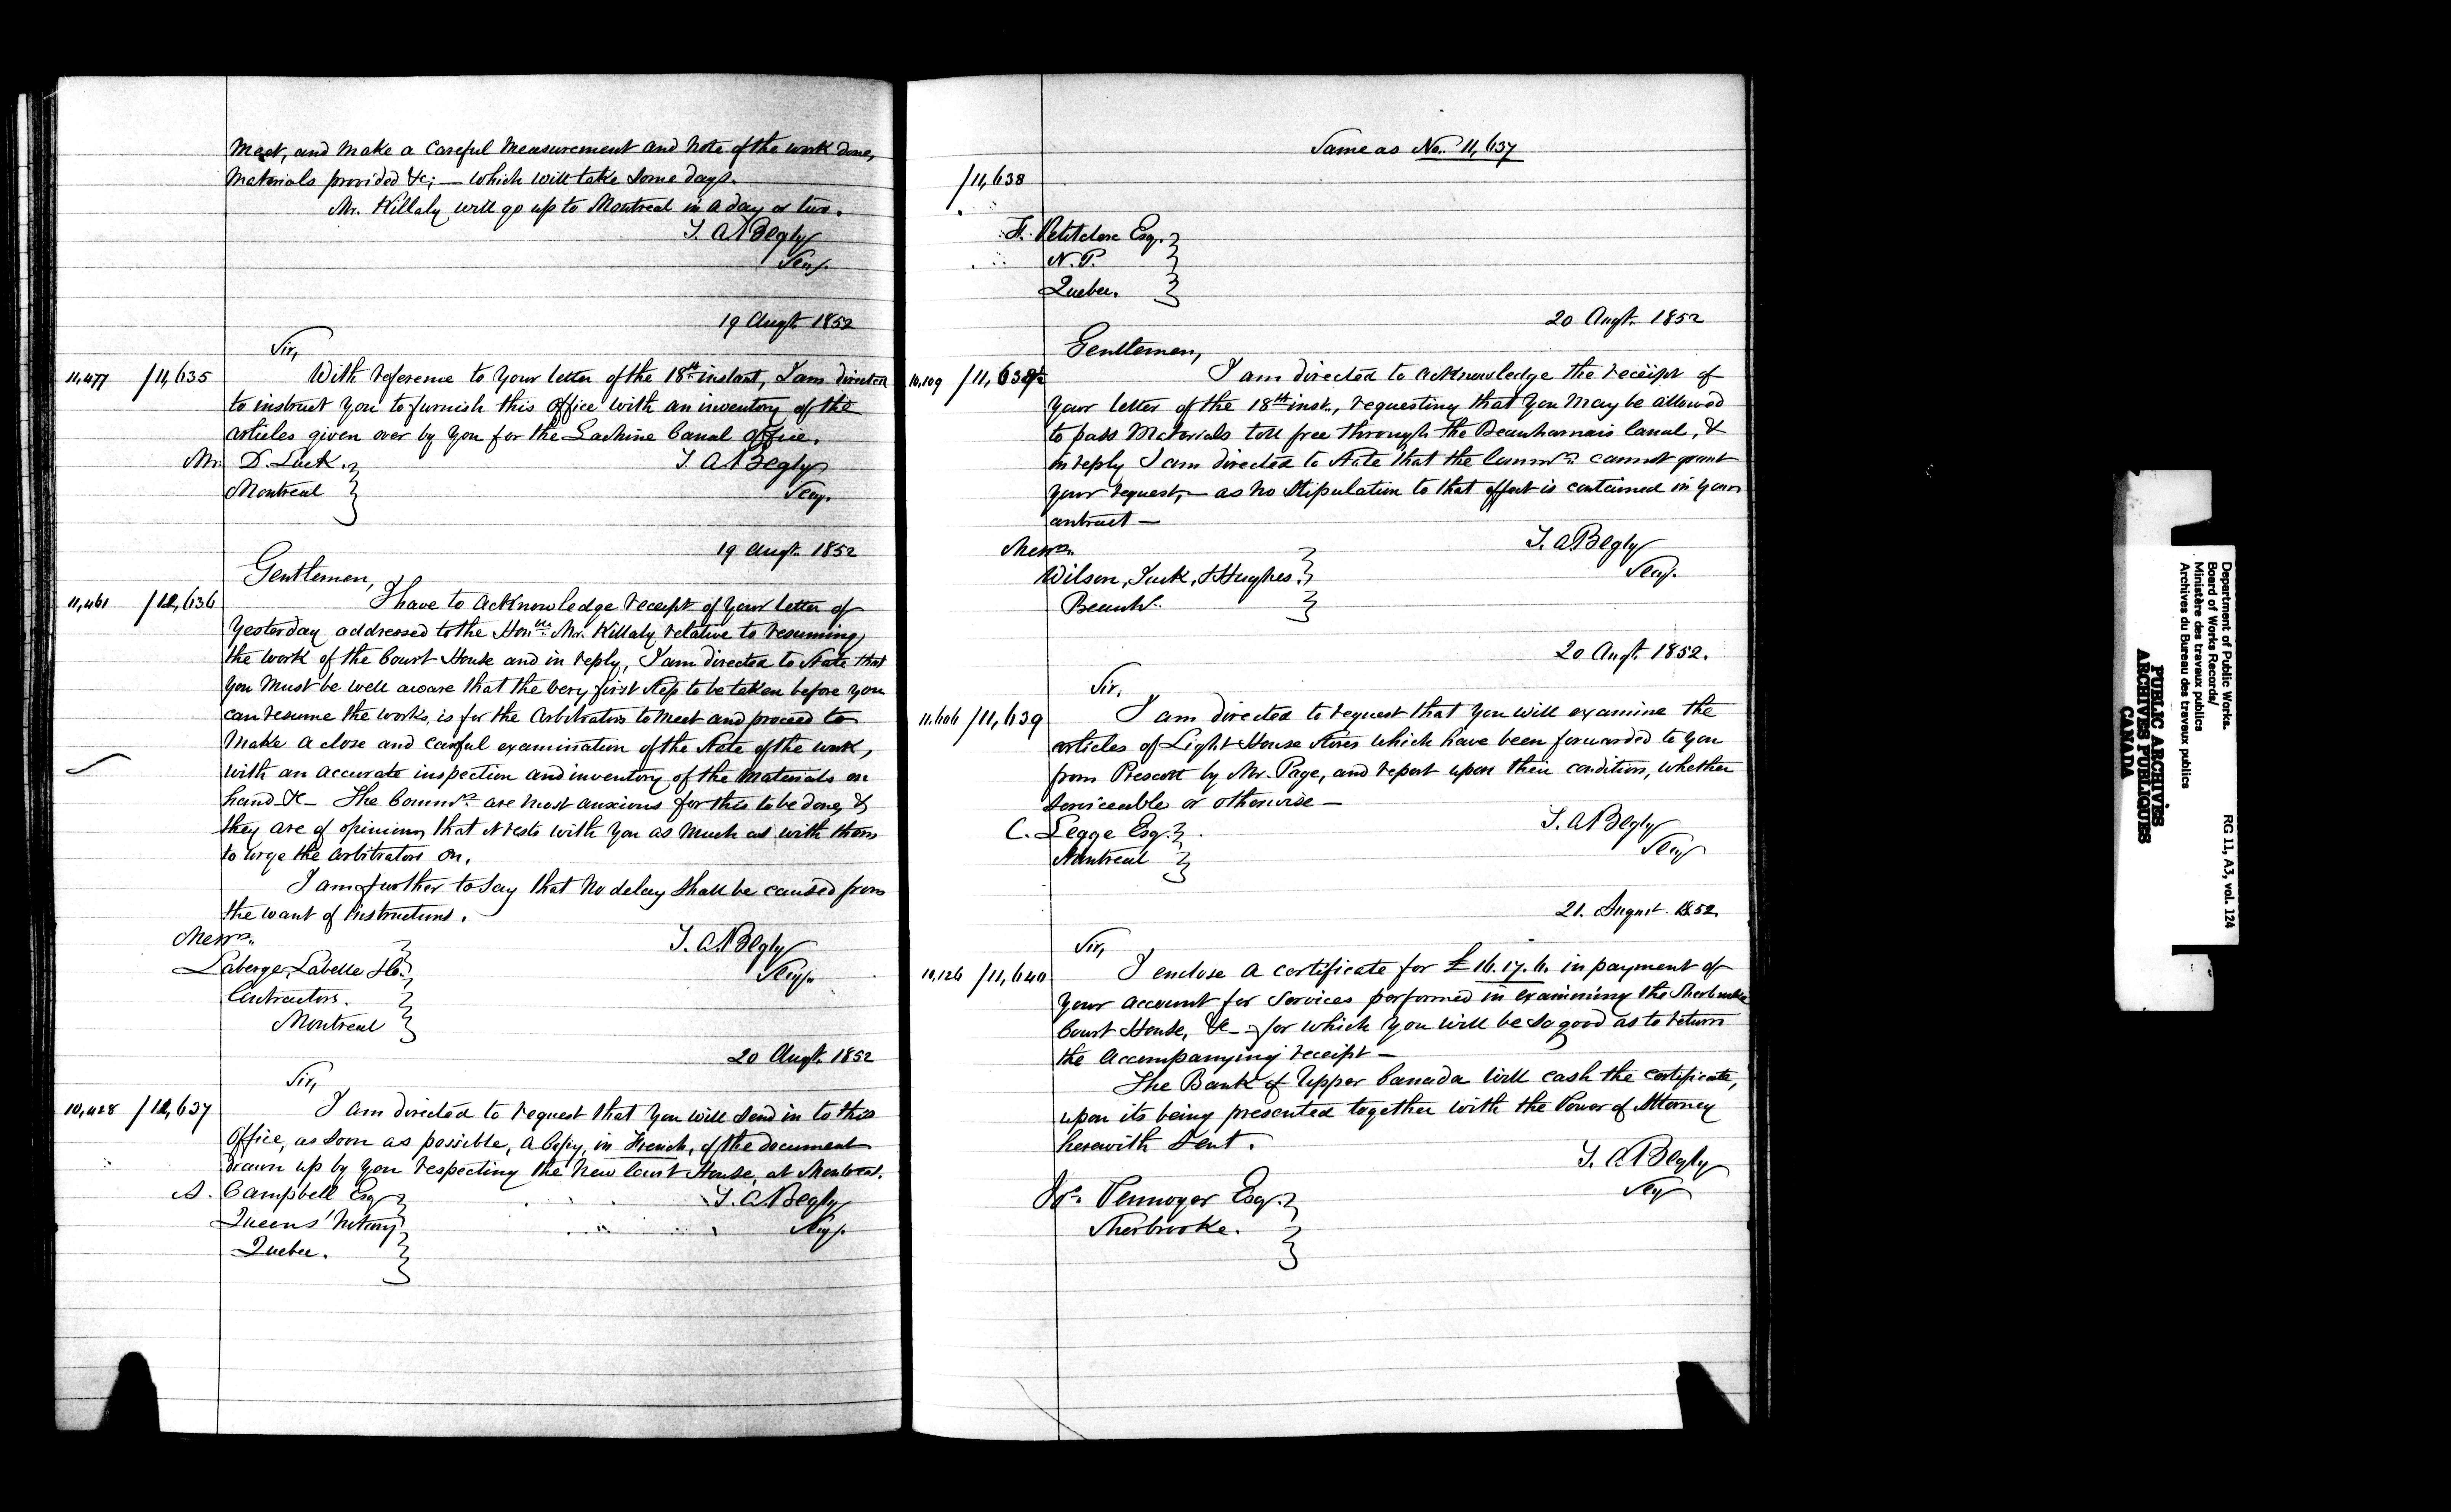 Meet, and make a careful measurement and note of the work done,
Materials provided &c; — which will take some days.
Mr. Killaly will go up to Montreal in a day or two.
T. A. Begly
Secy.
19 Augt. 1852
Sir,
11,477 /11,635 With reference to your letter of the 18th instant, I am directed
to instruct you to furnish this office with an inventory of the
articles given over by you for the Lachine Canal Office.
Mr. D. Luck.
T. A. Begly
Montreal
Secy.
19 Augt. 1852
Gentlemen,
11,461 /11,636 I have to acknowledge receipt of your letter of
yesterday addressed to the Honble. Mr. Killaly relative to resuming
the work of the Court House and in reply, I am directed to state that
you must be well aware that the very first step to be taken before you
can resume the works, is for the Arbitrators to meet and proceed to
make a close and careful examination of the state of the work,
with an accurate inspection and inventory of the materials on
hand &c — The Commrs. are most anxious for this to be done, &
they are of opinion, that it rests with you as much as with them
to urge the arbitrators on.
I am further to say that no delay shall be caused from
the want of instructions.
Messrs.
T. A. Begly
Laberge, Labelle & Co.
Secy.
Contractors.
Montreal
20 Augt. 1852
Sir,
10,428 /11,637 I am directed to request that you will send in to this
Office, as soon as possible, a Copy, in French, of the document
drawn up by you respecting the New Court House, at Montreal.
A. Campbell Esq
T. A. Begly
Queens' Notary
Secy.
Quebec.
Same as No. 11,637
/11,638
Petitclerc Esq.
N. P.
Quebec.
20 Augt. 1852
Gentlemen,
10,109 /11,638½ I am directed to acknowledge the receipt of
your letter of the 18th inst., requesting that you may be allowed
to pass Materials toll free through the Beauharnais Canal, &
in reply I am directed to state that the Commrs. cannot grant
your request, — as no stipulation to that effect is contained in your
contract —
Messrs.
T. A. Begly
Wilson, Tuck, & Hughes.
Secy.
Beauhs.
20 Augt. 1852.
Sir,
11,606 /11,639 I am directed to request that you will examine the
articles of Light House stores which have been forwarded to you
from Prescott by Mr. Page, and report upon their condition, whether
serviceable or otherwise —
C. Legge Esq.
T. A. Begly
Montreal
Secy
21. August. 1852.
Sir,
10,126 /11,640 I enclose a certificate for £16.17.6. in payment of
your account for services performed in examining the Sherbrooke
Court House, &c — for which you will be so good as to return
the accompanying receipt —
The Bank of Upper Canada will cash the certificate,
upon its being presented together with the Power of Attorney
herewith sent.
T. A. Begly
Secy
Pennoyer Esq.
Sherbrooke.
Department of Public Works.
Board of Works Records/
Ministère des travaux publics
Archives du Bureau des travaux publics
RG 11, A3, vol. 124
PUBLIC ARCHIVES
ARCHIVES PUBLIQUES
CANADA